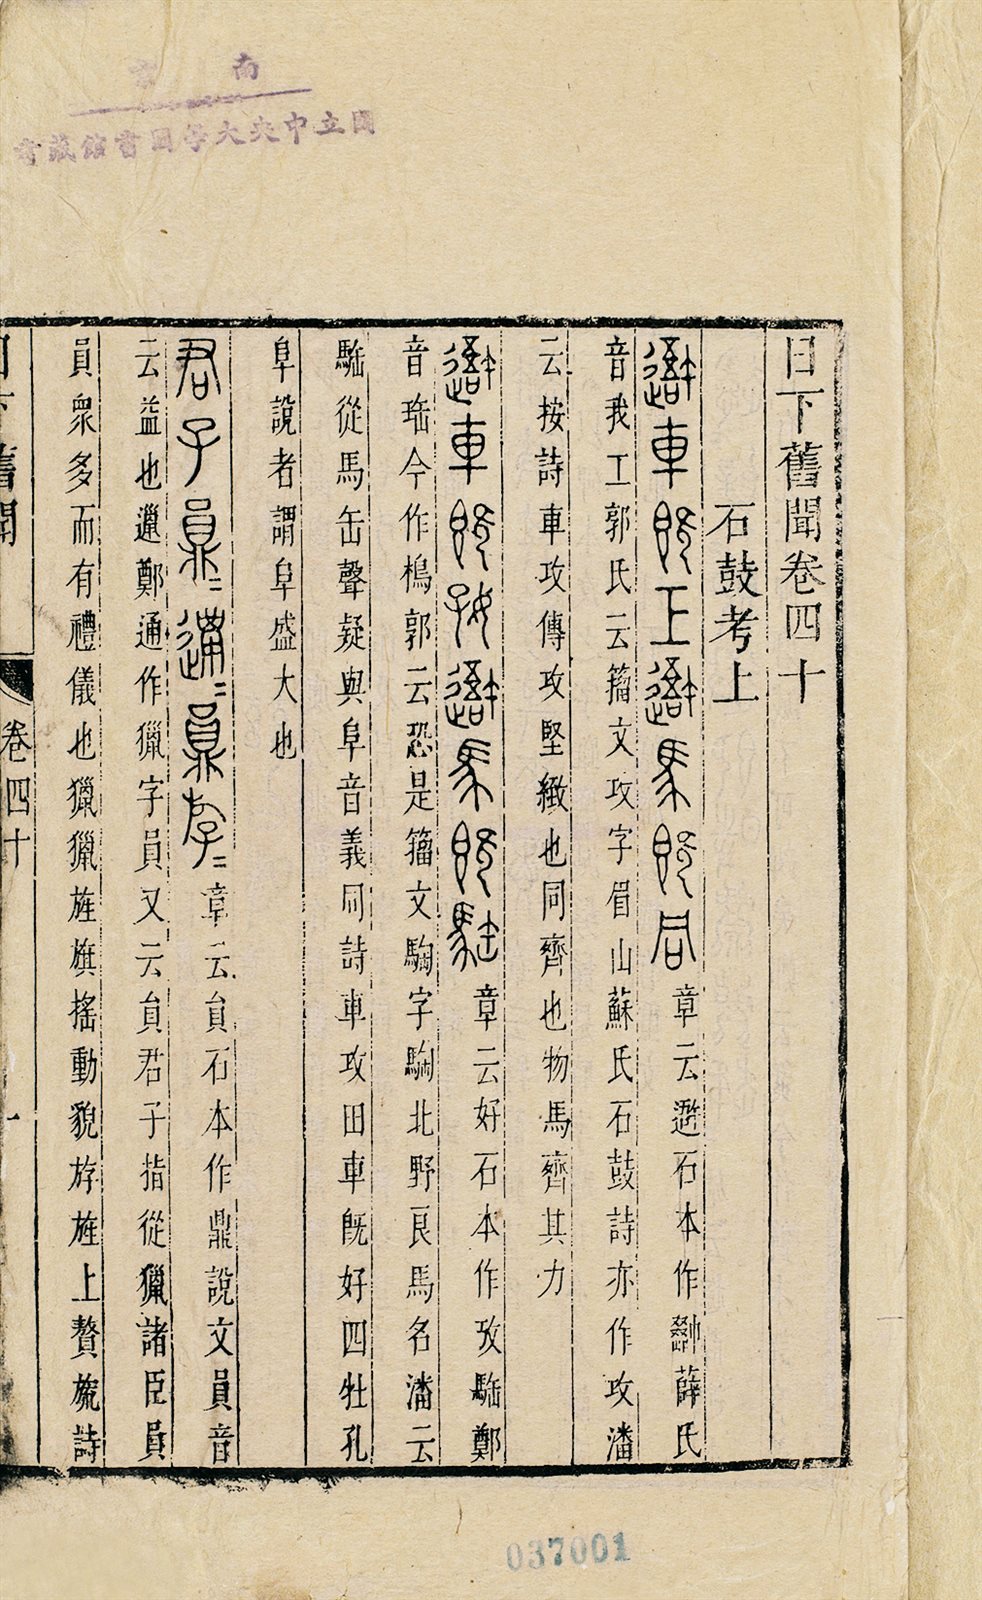 南京
國立中央大學圖書館藏書
日下舊聞卷四十
石鼓考上
避車既工避馬既同章云避石本作薛氏
音我工郭氏云籀文攻字眉山蘇氏石鼓詩亦作攻潘
云按詩車攻傳攻堅緻也同齊也物馬齊其力
避車既好避馬既駐章云好石本作攷駐鄭
音珤今作鴇郭云恐是籀文騊字騊北野良馬名潘云
駐從馬缶聲疑與阜音義同詩車攻田車既好四牡孔
阜說者謂阜盛大也
君子員員邋邋員斿章云員石本作鼎說文員音
云益也邋鄭通作獵字員又云員君子指從獵諸臣員
員衆多而有禮儀也獵獵旌旗搖動貌斿旌上贅旒詩
日下舊聞
卷四十
一
037001